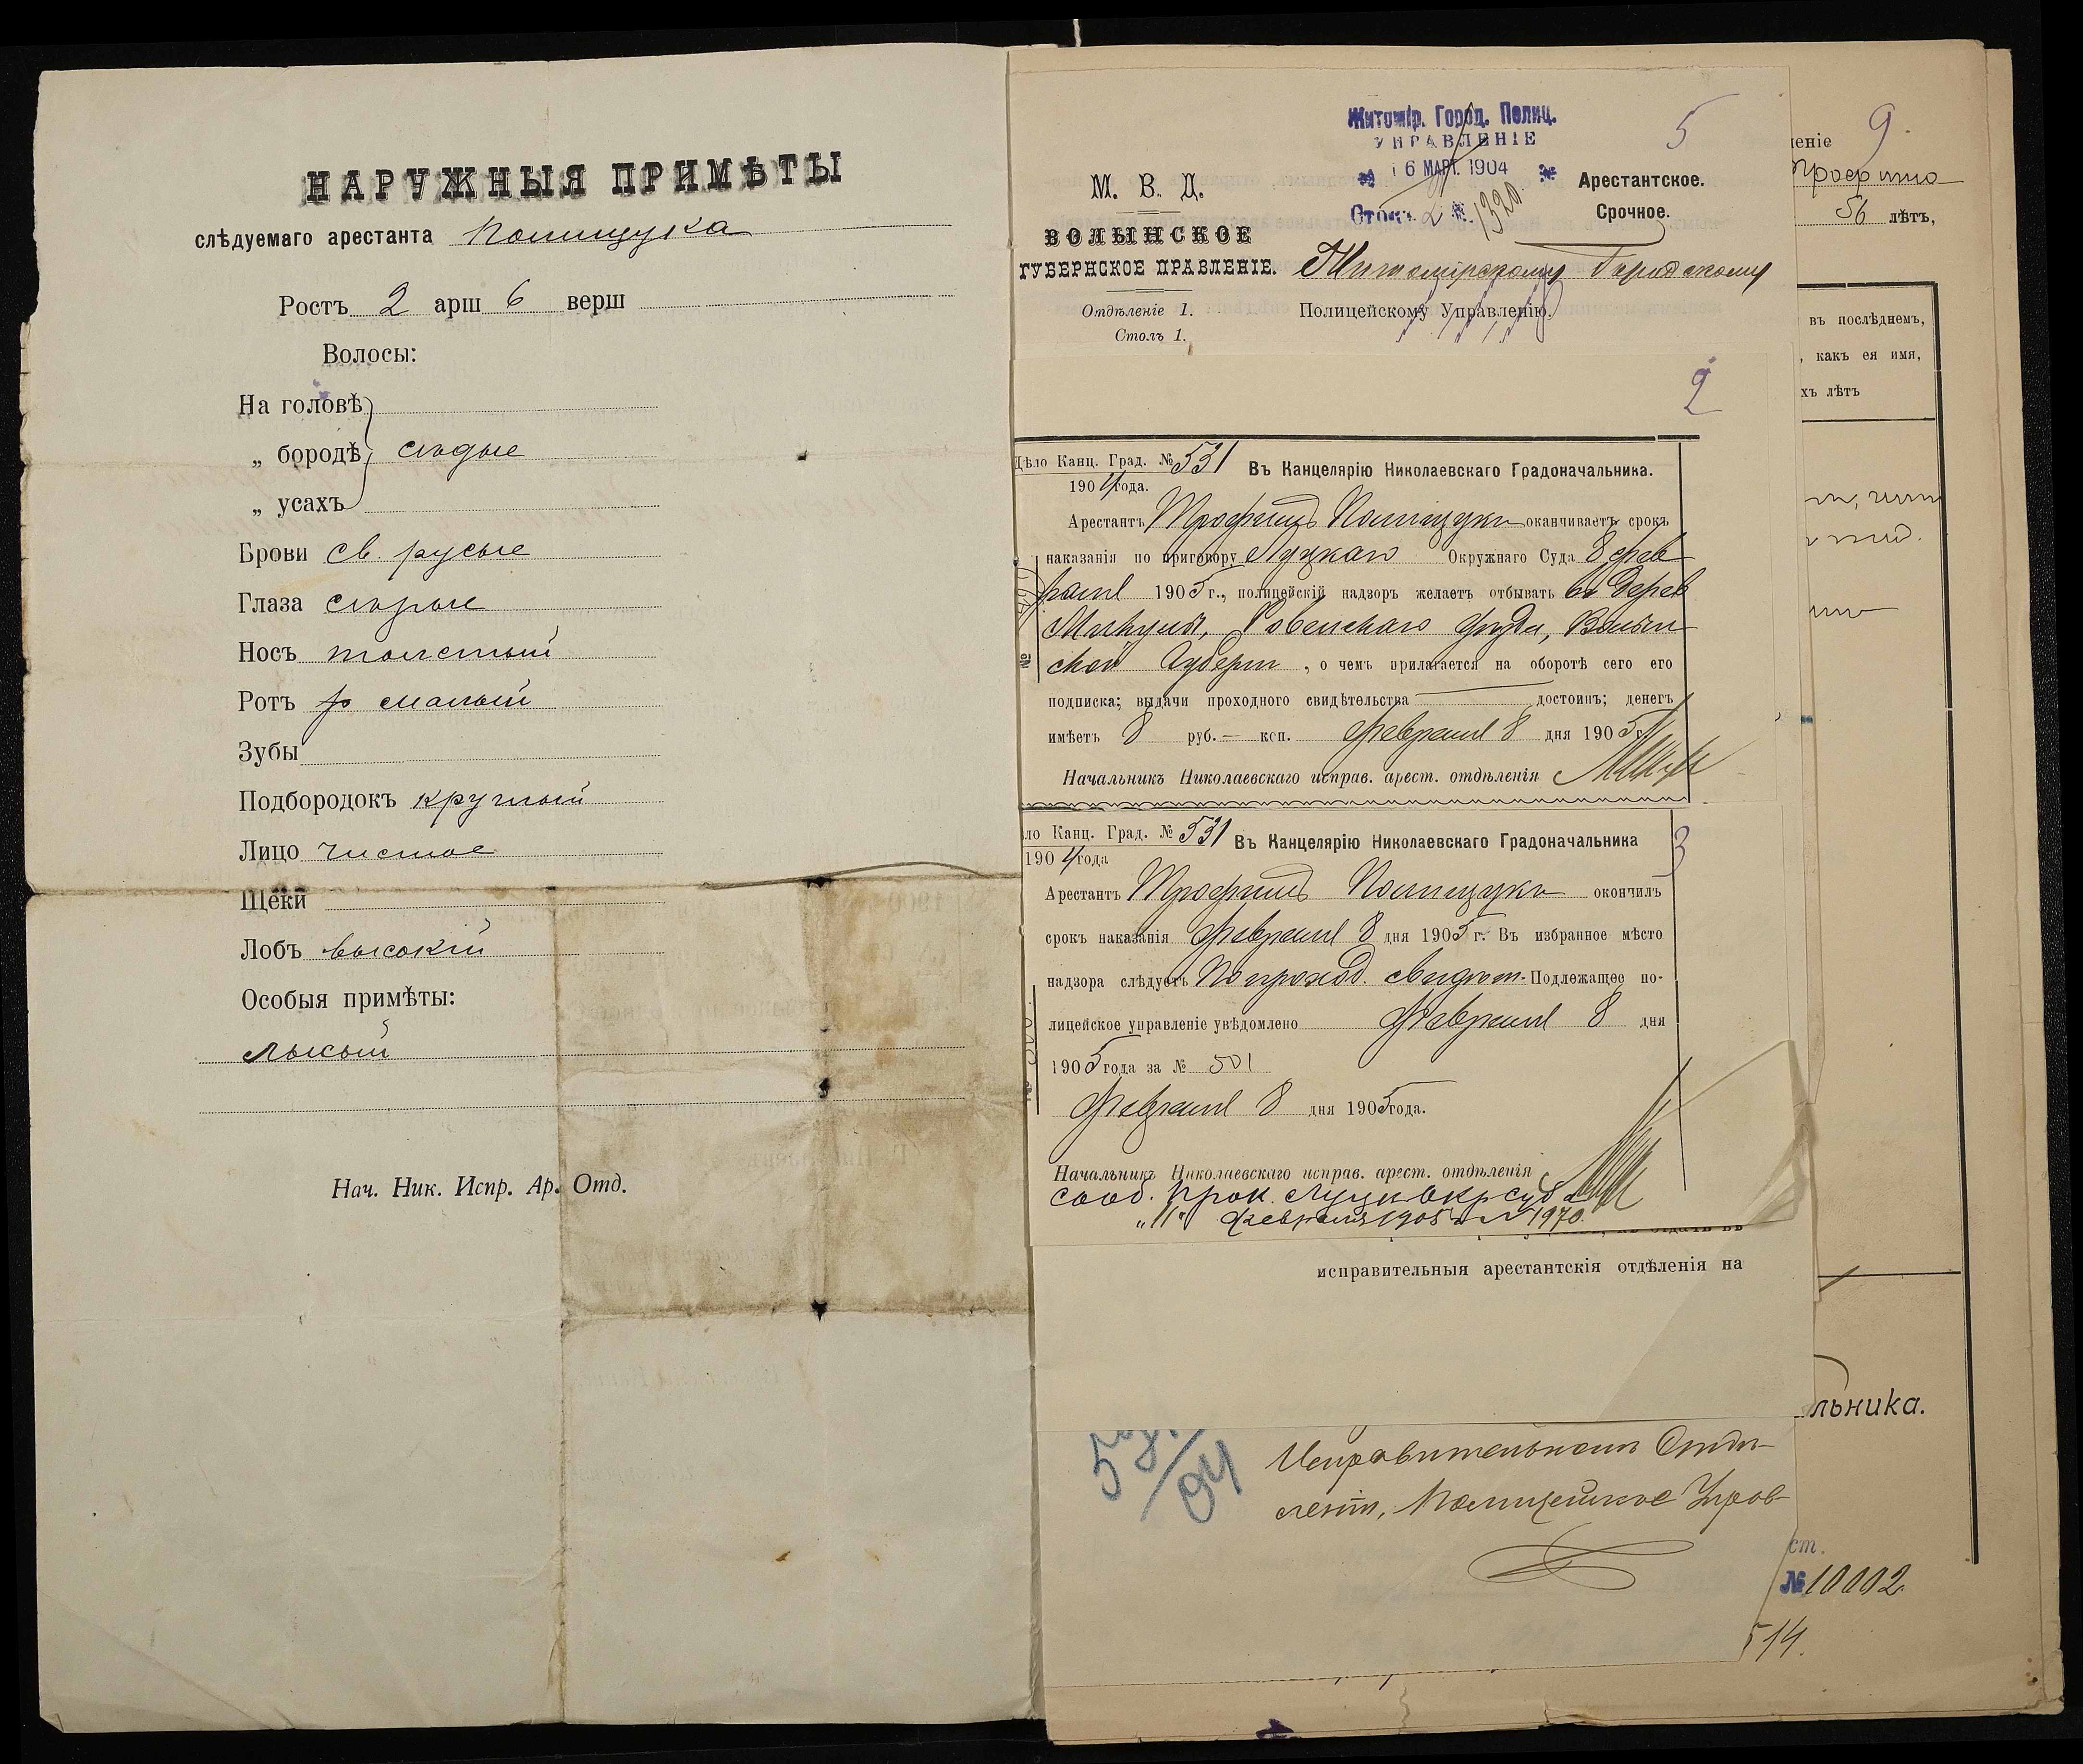 НАРУЖНЫЯ ПРИМѢТЫ
слѣдуемаго арестанта Полищука
Ростъ 2 арш 6 верш
Волосы:
На головѣ
„ бородѣ сѣдые
„ усахъ
Брови св. русые
Глаза сѣрые
Носъ толстый
Ротъ малый
Зубы
Подбородокъ круглый
Лицо чистое
Щеки
Лобъ высокій
Особыя примѣты:
лысый
Нач. Ник. Испр. Ар. Отд.
Житомір. Город. Полиц.
УПРАВЛЕНІЕ
16 МАРТ. 1904
Столъ 2 № 1320
5
М. В. Д.
ВОЛЫНСКОЕ
ГУБЕРНСКОЕ ПРАВЛЕНІЕ.
Отдѣленіе 1.
Столъ 1.
Арестантское.
Срочное.
Житомірскому Городскому
Полицейскому Управленію.
2
Дѣло Канц. Град. № 531
1904 года.
Въ Канцелярію Николаевскаго Градоначальника.
Арестантъ Трофимъ Полищукъ оканчиваетъ срокъ
наказанія по приговору Луцкаго Окружнаго Суда 8 фев
раля 1905 г., полицейскій надзоръ желаетъ отбывать въ дерев
Ровенскаго уѣзда, Волын
ской Губерн , о чемъ прилагается на оборотѣ сего его
подписка; выдачи проходного свидѣтельства достоинъ; денегъ
имѣетъ 8 руб. — коп. Февраля 8 дня 1905
Начальникъ Николаевскаго исправ. арест. отдѣленія
ло Канц. Град. № 531
1904 года
Въ Канцелярію Николаевскаго Градоначальника
3
Арестантъ Трофимъ Полищукъ окончилъ
срокъ наказанія Февраля 8 дня 1905 г. Въ избранное мѣсто
надзора слѣдуетъ по проход. свидѣт. Подлежащее по-
лицейское управленіе увѣдомлено Февраля 8 дня
1905 года за № 501
Февраля 8 дня 1905 года.
Начальникъ Николаевскаго исправ. арест. отдѣленія
сооб. прок. Луцк Окр суда
„11" февраля 1905 г № 1970.
исправительныя арестантскія отдѣленія на
Исправительном Отдѣ-
леніи, Полицейское Управ-
04
9.
леніе
Трофима
56 лѣтъ,
въ послѣднемъ,
, какъ ея имя,
хъ лѣтъ
льника.
ст.
№ 10002
514.